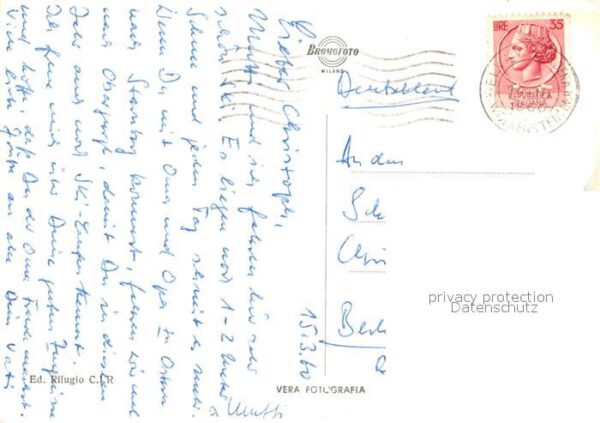 15.3.60
Lieber Christoph,
Mutti und ich fahren hier sehr
schön Ski. Es liegen noch 1-2 Meter
Schnee und jeden Tag scheint es mehr.
Wenn Du mit Oma und Opa zu Ostern
nach Starnberg kommst, fahren wir mal
nach Obergurgl, damit Du in diesem
Jahr auch noch Ski-laufen kannst.
Ich freue mich über Deine guten Zeugnisse
und hoffe, daß Du der Oma Freude machst.
Viele liebe Grüße an alle Dein Vati
& Mutti
BROMOFOTO
MILANO
Deutschland
LIRE 35
REPUBBLICA
ITALIANA
WOLKENSTEIN
An den
Sch
Chri
Berl
privacy protection
Datenschutz
Ed. Rifugio C.I.R
VERA FOTOGRAFIA